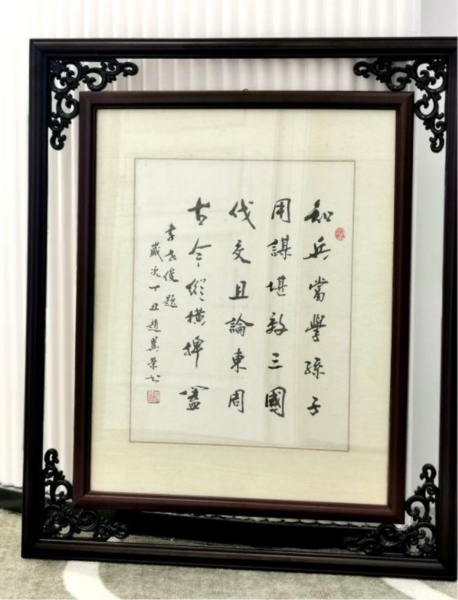 知兵當學孫子
用謀堪效三國
伐交且論東周
古今縱橫捭闔
李俊題
歲次丁丑趙書